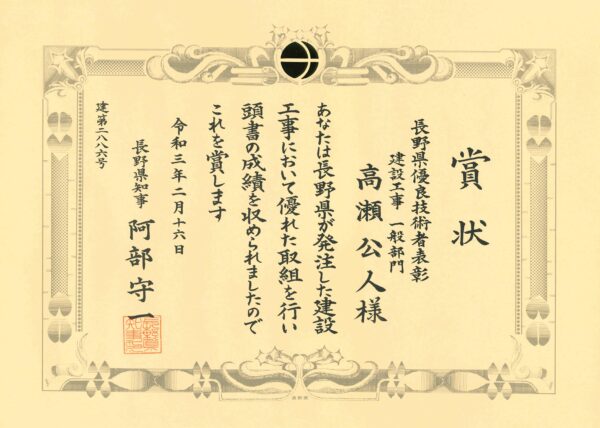 賞状
長野県優良技術者表彰
建設工事 一般部門
高瀬公人様
あなたは長野県が発注した建設
工事において優れた取組を行い
頭書の成績を収められましたので
これを賞します
令和三年二月十六日
長野県知事 阿部守一
建第二八八六号